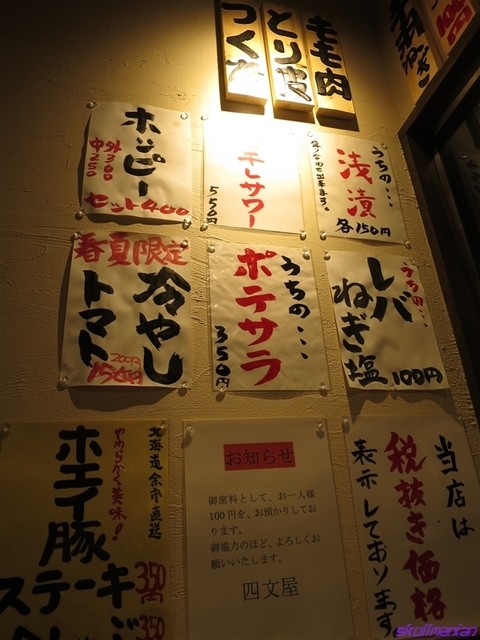 もも肉
とり皮
つくね
ホッピー
外300
中250
セット400
サワー
550円
うちの…
浅漬
各150円
春夏限定
冷やし
トマト
200円
150円
うちの…
ポテサラ
350円
うちの…
レバ
ねぎ塩
100円
北海道余市直送
やわらかく美味!
ホエイ豚
ステーキ
350
350
お知らせ
御席料として、お一人様
100円を、お預かりしてお
ります。
御協力のほど、よろしくお
願いいたします。
四文屋
当店は
税抜き価格
表示しております
skulinarian